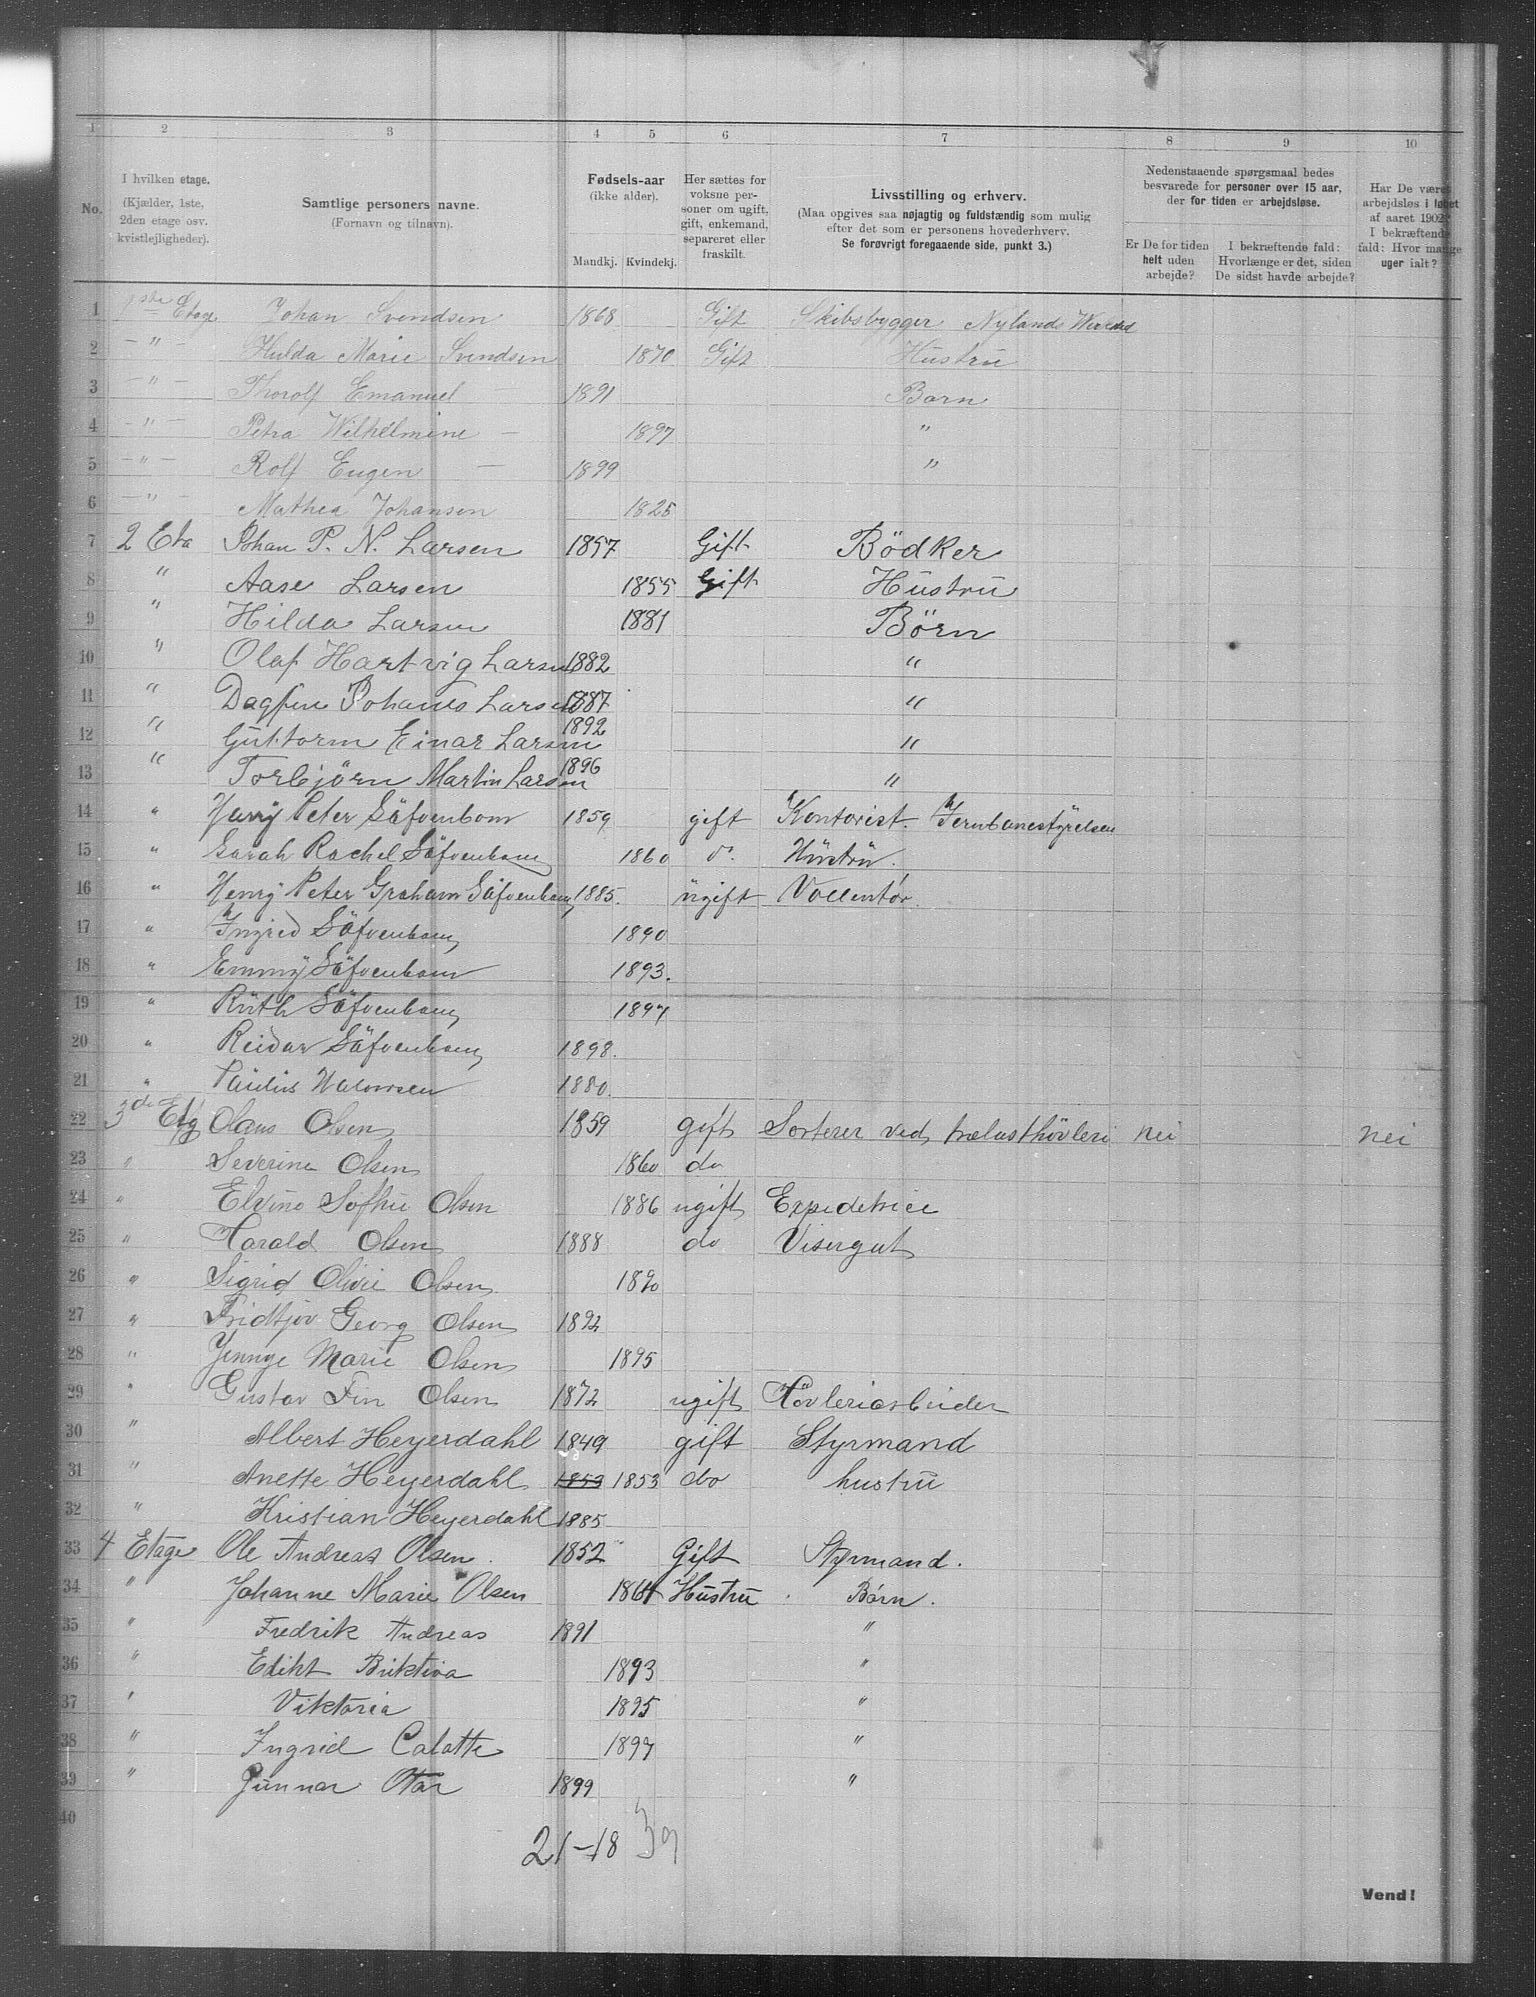 1 2 3 4 5 6 7 8 9 10
No.
I hvilken etage. (Kjælder, 1ste, 2den etage osv. kvistlejligheder).
Samtlige personers navne. (Fornavn og tilnavn).
Fødsels-aar (ikke alder). Mandkj. Kvindekj.
Her sættes for voksne personer om ugift, gift, enkemand, separeret eller fraskilt.
Livsstilling og erhverv. (Maa opgives saa nøjagtig og fuldstændig som mulig efter det som er personens hovederhverv. Se forøvrigt foregaaende side, punkt 3.)
Nedenstaaende spørgsmaal bedes besvarede for personer over 15 aar, der for tiden er arbejdsløse.
Er De for tiden helt uden arbejde?
I bekræftende fald: Hvorlænge er det, siden De sidst havde arbejde?
Har De været arbejdsløs i løbet af aaret 1902? I bekræftende fald: Hvor mange uger ialt?
1 1ste Etage Johan Svendsen 1868 Gift Skibsbygger Nylands
2 " Hulda Marie Svendsen 1870 Gift Hustru
3 " Thorolf Emanuel — 1891 Barn
4 " Petra Wilhelmine — 1897 "
5 " Rolf Eugen — 1899 "
6 " Mathea Johansen 1825
7 2 Eta Johan P. N. Larsen 1857 Gift Bödker
8 " Aase Larsen 1855 Gift Hustru
9 " Hilda Larsen 1881 Börn
10 " Olaf Hartvig Larsen 1882 "
11 " Dagfin Johanes Larsen 1887 "
12 " Guttorm Einar Larsen 1892 "
13 " Torbjörn Martin Larsen 1896 "
14 " Harry Peter Säfvenbom 1859 gift Kontorist. Jernbanestyrelsen
15 " Sarah Rachel Säfvenbom 1860 do. Hustru.
16 " Henry Peter Graham Säfvenbom 1885. ugift Vollentör
17 " Ingrid Säfvenbom 1890
18 " Emmy Säfvenbom 1893.
19 " Ruth Säfvenbom 1897
20 " Reidar Säfvenbom 1898.
21 " 1880.
22 3de Etg Claus Olsen 1859 gift Sorterer ved trælasthövleri nei nei
23 " Severine Olsen 1860 do
24 " Elvine Sofhie Olsen 1886 ugift Expeditrice
25 " Harald Olsen 1888 do Visergut
26 " Sigrid Olivie Olsen 1890
27 " Fridtjov Georg Olsen 1892
28 " Jennye Marie Olsen 1895
29 " Gustav Fin Olsen 1872 ugift Hövleriarbeider
30 " Albert Heyerdahl 1849 gift Styrmand
31 " Anette Heyerdahl 1853 1853 do hustru
32 " Kristian Heyerdahl 1885
33 4 Etage Ole Andreas Olsen. 1852 Gift Styrmand.
34 " Johanne Marie Olsen 1861 Hustru. Börn.
35 " Fredrik Andreas 1891 "
36 " Ediht 1893 "
37 " Viktoria 1895 "
38 " Ingrid Calotte 1897 "
39 " Gunnar Otar 1899 "
40
21–18 39
Vend!